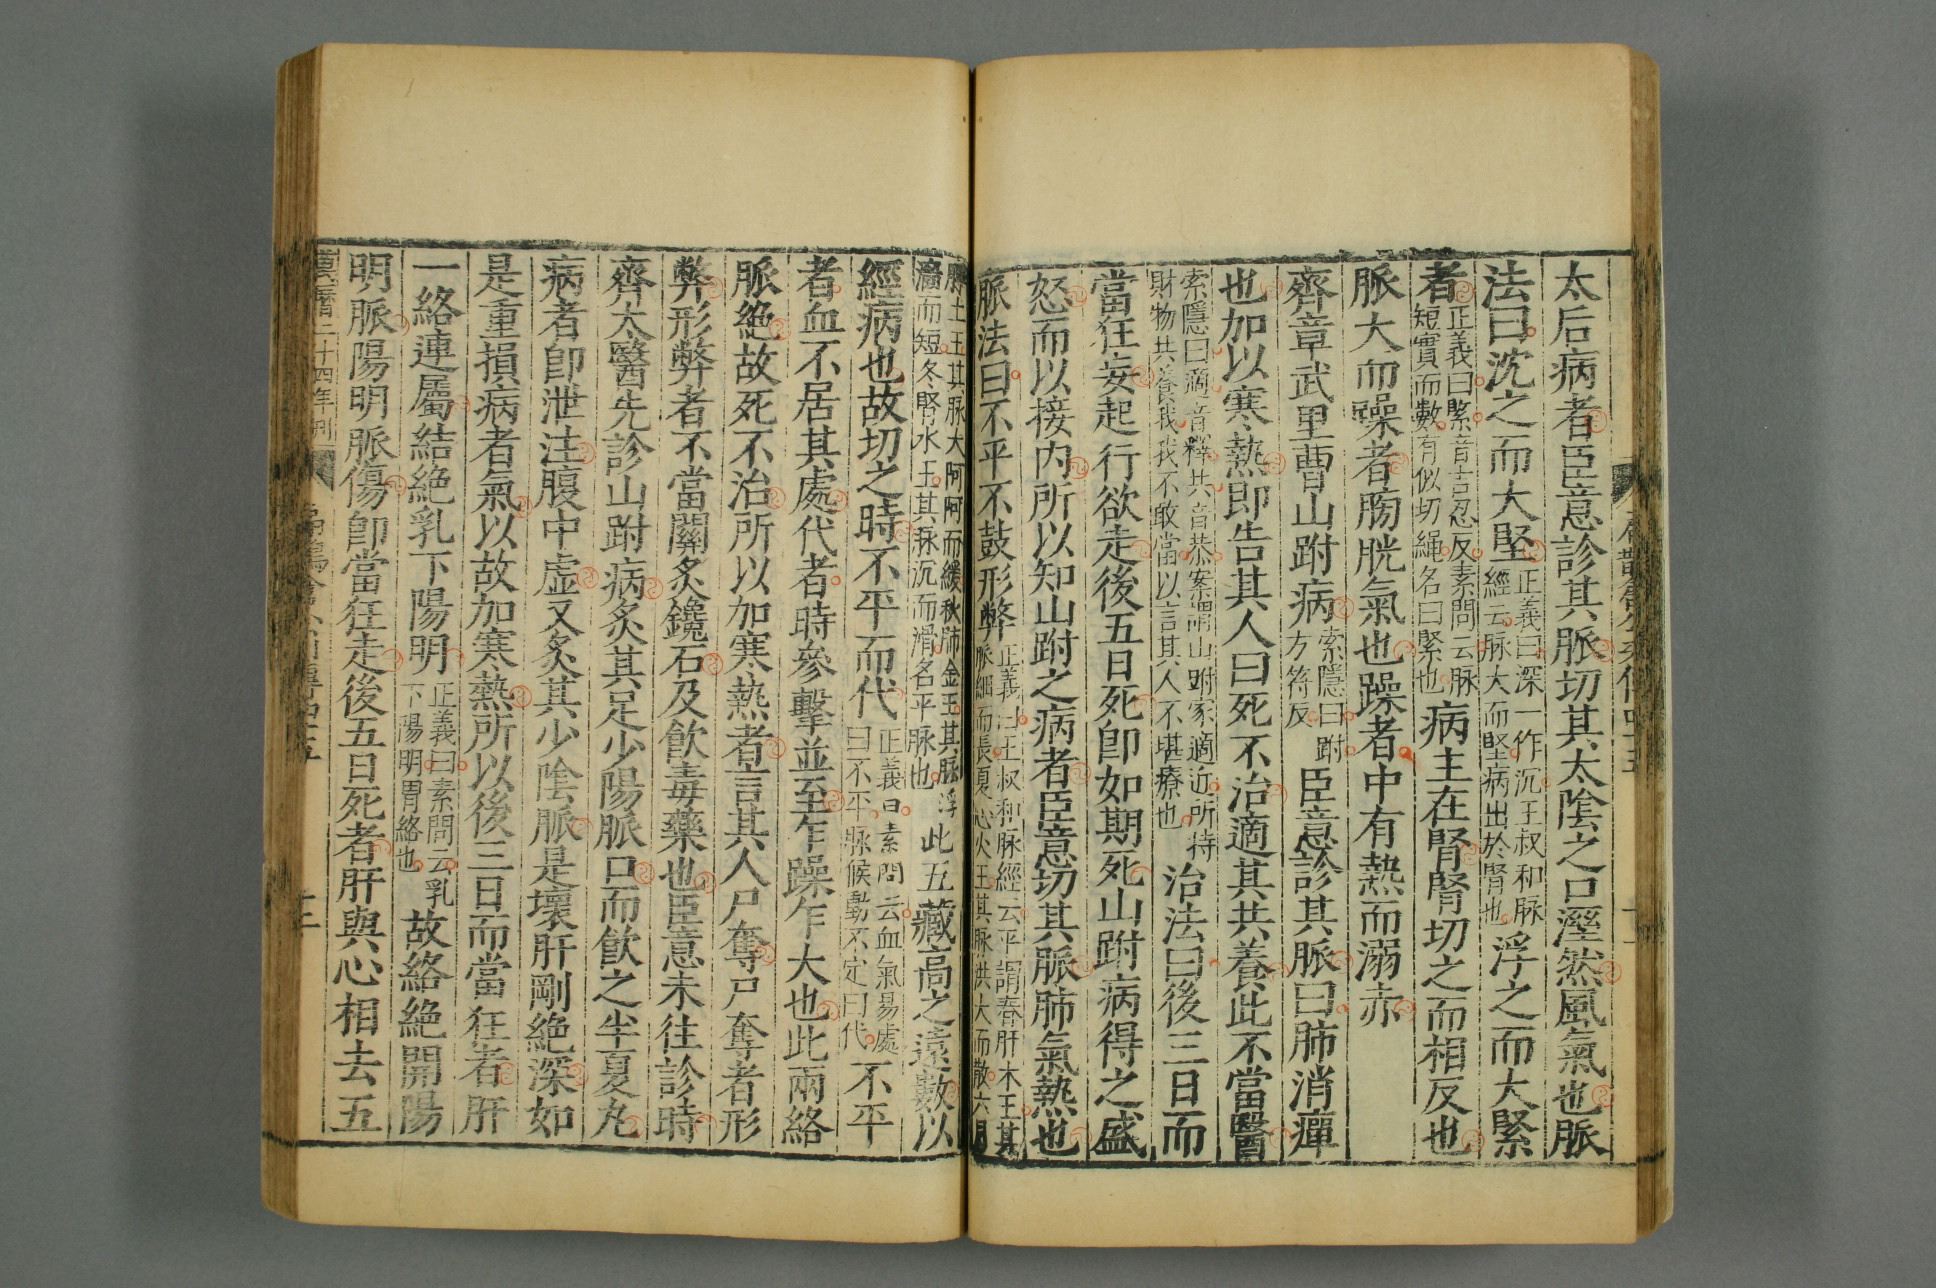 太后病者臣意診其脈切其太陰之口溼然風氣也脈
法曰沈之而大堅正義曰深一作沉王叔和脉經云脉大而堅病出於腎也浮之而大緊
者正義曰緊音吉忍反素問云脉短實而數有似切繩名曰緊也病主在腎腎切之而相反也
脈大而躁者膀胱氣也躁者中有熱而溺赤
齊章武里曹山跗病索隱曰跗方符反臣意診其脈曰肺消癉
也加以寒熱即告其人曰死不治適其共養此不當醫
索隱曰適音釋共音恭案謂山跗家適近所持財物共養我我不敢當以言其人不堪療也治法曰後三日而
當狂妄起行欲走後五日死即如期死山跗病得之盛
怒而以接内所以知山跗之病者臣意切其脈肺氣熱也
脈法曰不平不鼓形弊正義曰王叔和脉經云平謂春肝木王其脈細而長夏心火王其脉洪大而散六月
脾土王其脉大阿阿而緩秋肺金王其脉浮濇而短冬腎水王其脉沉而滑名平脉也此五藏高之遠數以
經病也故切之時不平而代正義曰素問云血氣易處曰不平脉候動不定曰代不平
者血不居其處代者時參擊並至乍躁乍大也此兩絡
脈絶故死不治所以加寒熱者言其人尸奪尸奪者形
弊形弊者不當關灸鑱石及飲毒藥也臣意未往診時
齊太醫先診山跗病灸其足少陽脈口而飲之半夏丸
病者即泄注腹中虛又灸其少陰脈是壞肝剛絶深如
是重損病者氣以故加寒熱所以後三日而當狂者肝
一絡連屬結絶乳下陽明正義曰素問云乳下陽明胃絡也故絡絶開陽
明脈陽明脈傷即當狂走後五日死者肝與心相去五
萬曆二十四年刊